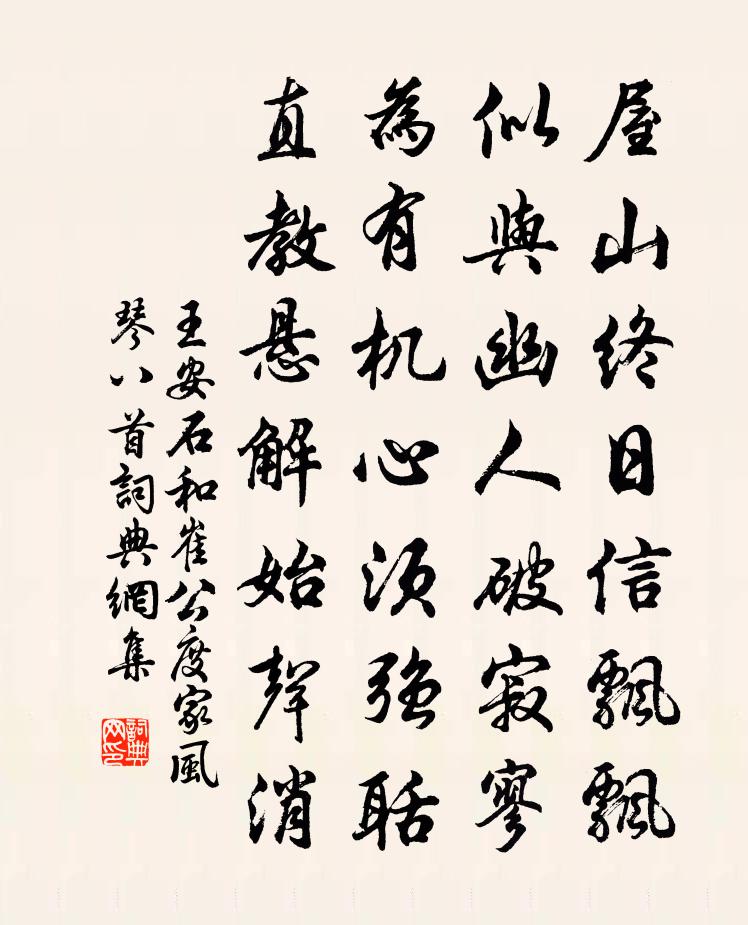 屋山終日信飄飄
似與幽人破寂寥
為有机心須強聒
直教懸解始聲消
王安石和崔公度家風
琴八首詞典網集
詞典網印